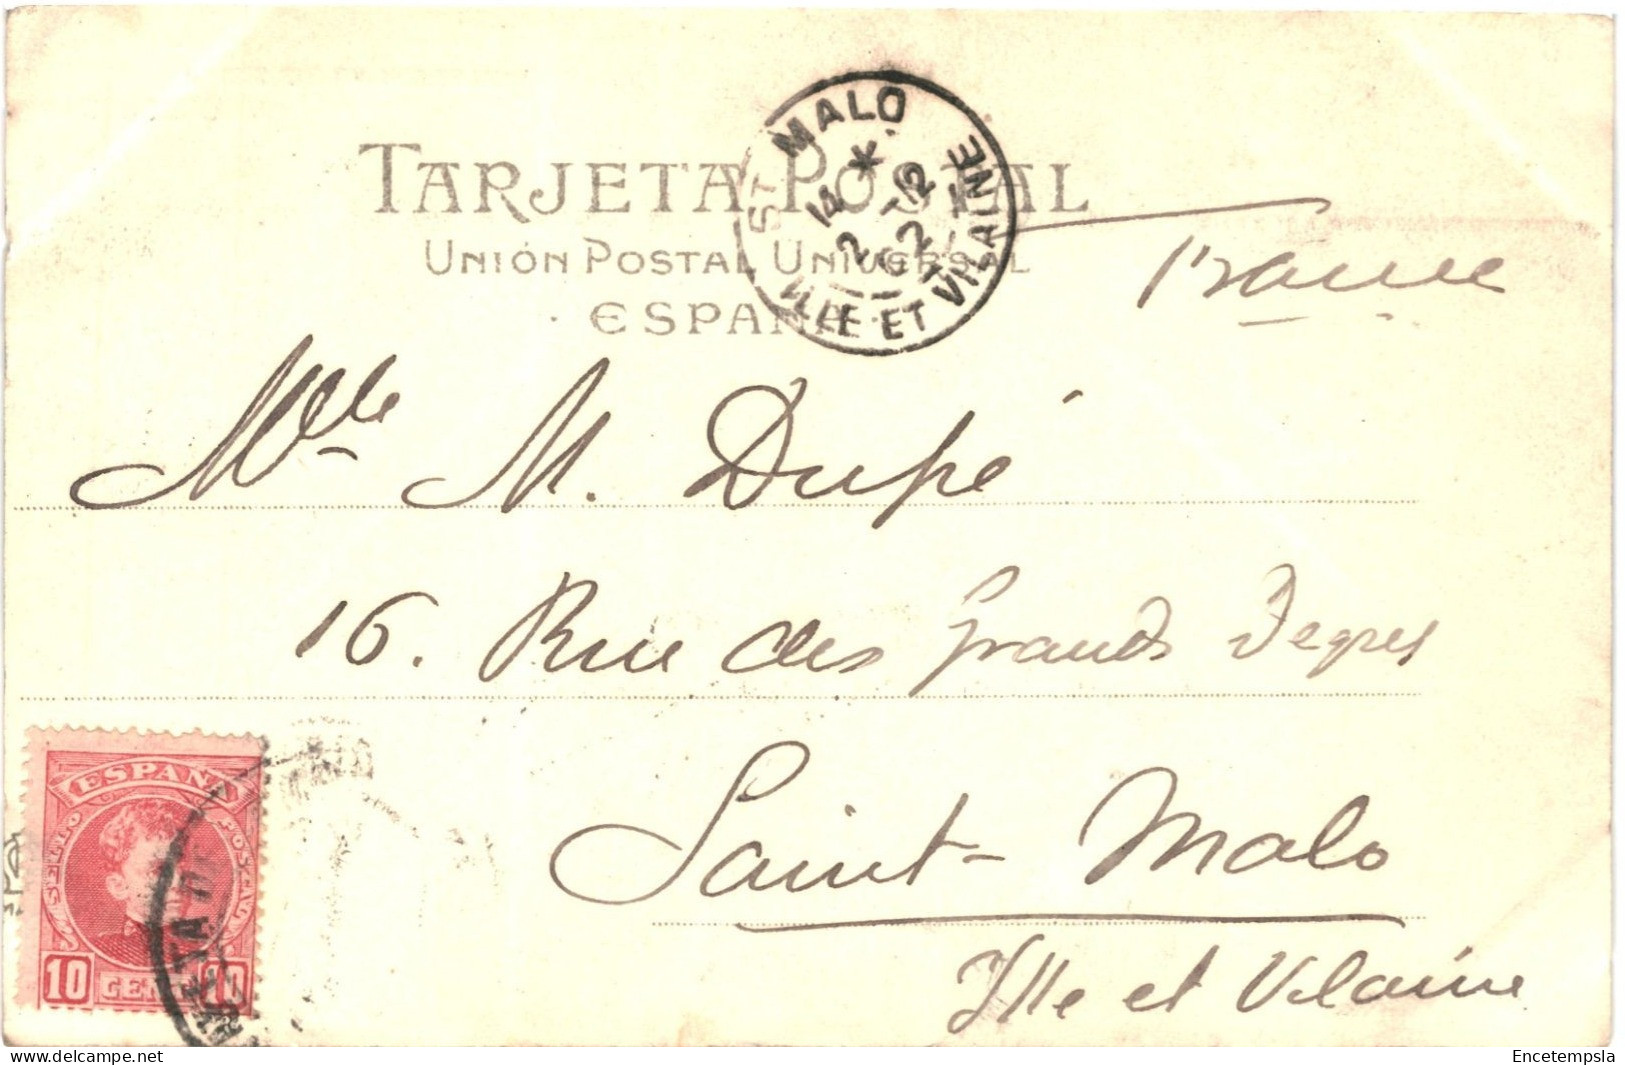 TARJETA POSTAL
UNIÓN POSTAL UNIVERSAL
ESPAÑA
ST MALO
14
2 02
ILLE ET VILAINE
France
Mlle M. Dupé
16. Rue des Grands Degres
Saint-Malo
Ille et Vilaine
ESPAÑA
SELLO POSTAL
10 CENT 10
Encetempsla